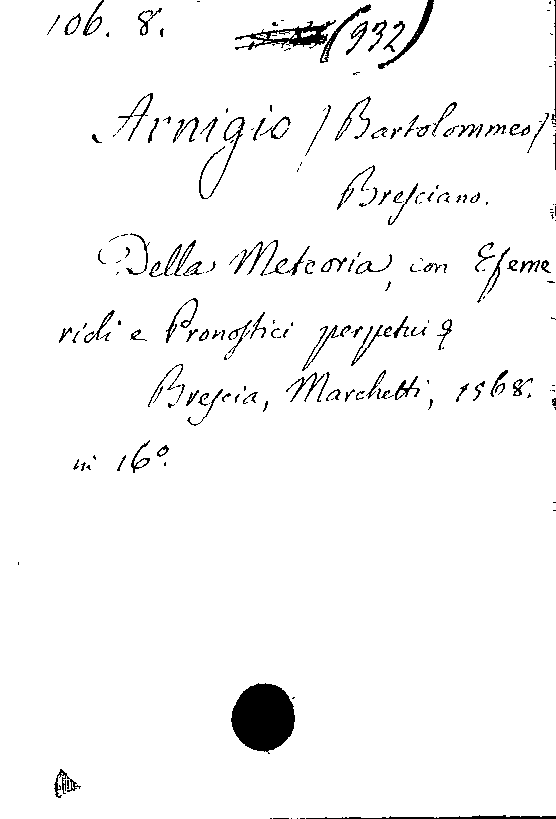 106. 8. (932)
Arnigio / Bartolommeo /
Bresciano.
Della Meteoria, con Efeme
ridi e Pronostici perpetui
Brescia, Marchetti, 1568.
in 16º.